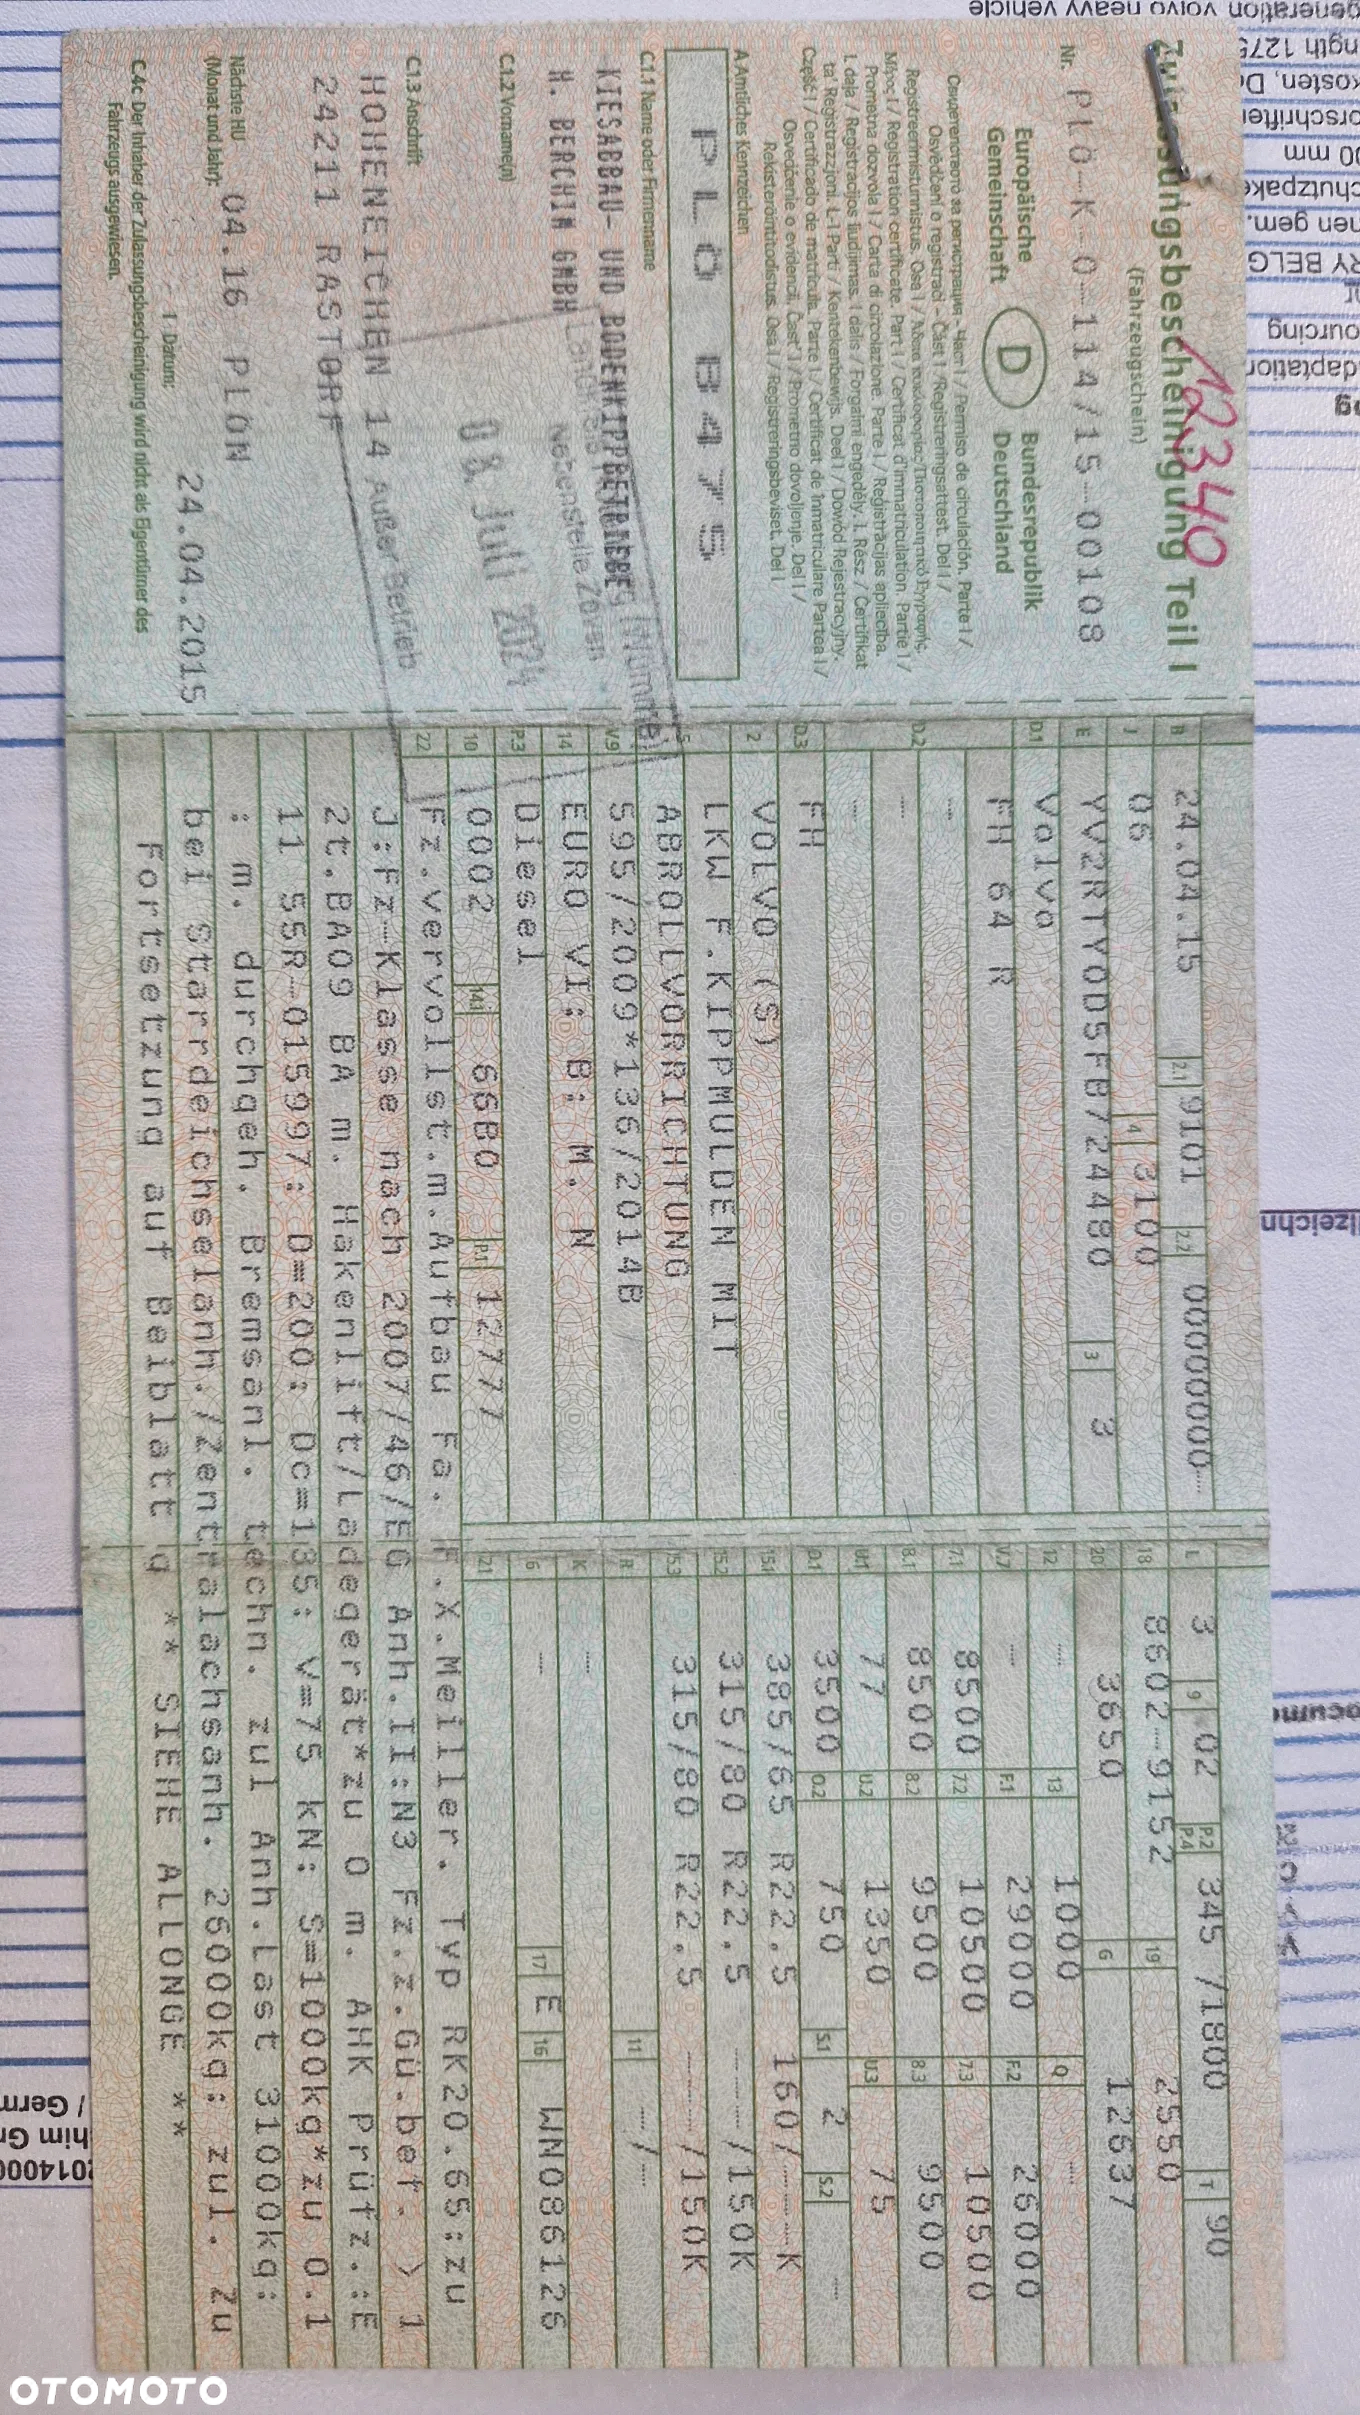 12340
Zulassungsbescheinigung Teil I
(Fahrzeugschein)
Nr. PLÖ--K--0--114/15--00108
Europäische
Gemeinschaft
D
Bundesrepublik
Deutschland
Свидетелство за регистрация - Част I / Permiso de circulación. Parte I /
Osvědčení o registraci – Část I / Registreringsattest. Del I /
Registreerimistunnistus. Osa I /
/ Registration certificate. Part I / Certificat d'immatriculation. Partie I /
Prometna dozvola I / Carta di circolazione. Parte I / Reģistrācijas apliecība.
I. daļa / Registracijos liudijimas. I dalis / Forgalmi engedély. I. Rész / Ċertifikat
ta' Reġistrazzjoni. L-I Parti / Kentekenbewijs. Deel I / Dowód Rejestracyjny.
Część I / Certificado de matrícula. Parte I / Certificat de înmatriculare Partea I /
Osvedčenie o evidencii. Časť I / Prometno dovoljenje. Del I /
Rekisteröintitodistus. Osa I / Registreringsbeviset. Del I
A Amtliches Kennzeichen
PLÖ B475
C.1.1 Name oder Firmenname
KIESABBAU- UND BODENKIPPBETRIEBE
H. BERCHIM GMBH
C.1.2 Vorname(n)
Nebenstelle Zeven
08. Juli 2024
C.1.3 Anschrift
HOHENEICHEN 14
Außer Betrieb
24211 RASTORF
Nächste HU
(Monat und Jahr):
04.16 PLÖN
Datum:
24.04.2015
C.4c Der Inhaber der Zulassungsbescheinigung wird nicht als Eigentümer des
Fahrzeugs ausgewiesen.
B 24.04.15 2.1 9101 2.2 00000000--
J 06 4 3100
E YV2RTY0D5FB724480 3 3
D.1 Volvo
FH 64 R
D.2 --
--
--
D.3 FH
2 VOLVO (S)
5 LKW F.KIPPMULDEN MIT
ABROLLVORRICHTUNG
V.9 595/2009*136/2014B
14 EURO VI; B; M, N
P.3 Diesel
10 0002 14.1 66B0 P.1 12777
L 3 9 02 P.2 P.4 345 /1800 T 90
18 8602--9152 19 2550
20 3650 G 12637
12 -- 13 1000 Q --
V.7 -- F.1 29000 F.2 26000
7.1 8500 7.2 10500 7.3 10500
8.1 8500 8.2 9500 8.3 9500
U.1 77 U.2 1350 U.3 75
O.1 3500 O.2 750 S.1 2 S.2 --
15.1 385/65 R22.5 160/---K
15.2 315/80 R22.5 ---/150K
15.3 315/80 R22.5 ---/150K
R 11 --/--
K --
6 -- 17 E 16 WN086126
21
22 Fz.vervollst.m.Aufbau Fa. F.X.Meiller. Typ RK20.65;zu
J:Fz-Klasse nach 2007/46/EG Anh.II:N3 Fz.z.Gü.bef. > 1
2t.BA09 BA m. Hakenlift/Ladegerät*zu O m. AHK Prüfz.:E
11 55R-015997; D=200; Dc=135; V=75 kN; S=1000kg*zu O.1
: m. durchgeh. Bremsanl. techn. zul Anh.Last 31000kg;
bei Starrdeichselanh./Zentralachsanh. 26000kg; zul. zu
Fortsetzung auf Beiblatt g ** SIEHE ALLONGE **
volvo heavy vehicle
ngth 1275
00 mm
RY BELG
ourcing
OTOMOTO